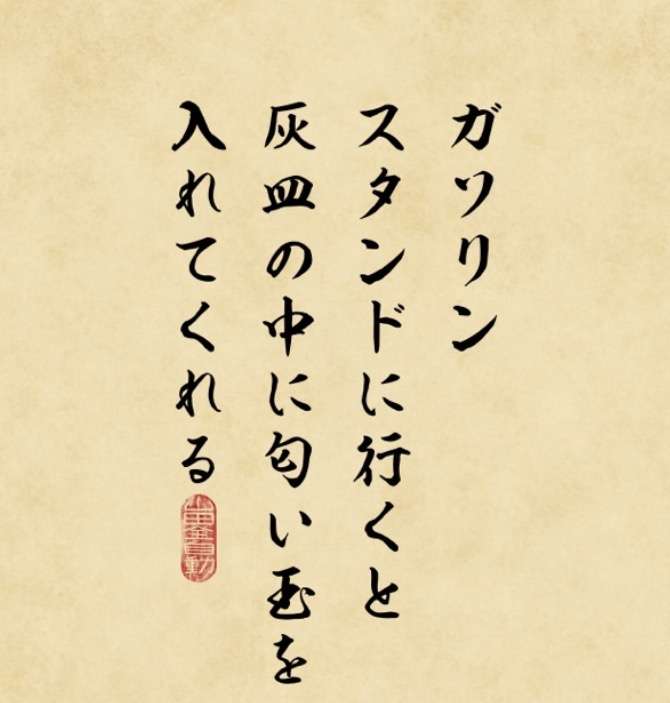 ガソリン
スタンドに行くと
灰皿の中に匂い玉を
入れてくれる